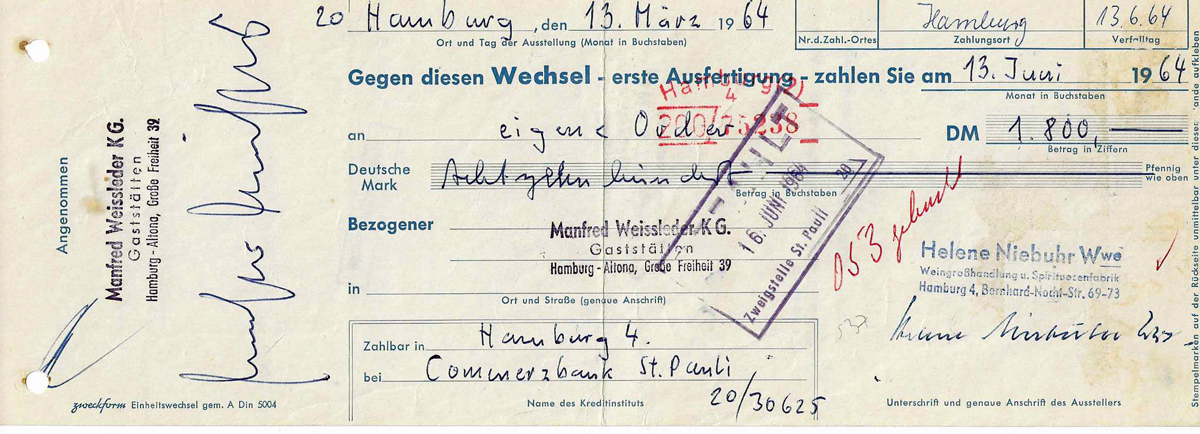 20 Hamburg, den 13. März 1964
Ort und Tag der Ausstellung (Monat in Buchstaben)
Nr.d.Zahl.-Ortes
Hamburg
Zahlungsort
13.6.64
Verfalltag
Gegen diesen Wechsel - erste Ausfertigung - zahlen Sie am 13. Juni 1964
Monat in Buchstaben
Hamburg (2)
4
200/75238
an eigene Order DM 1.800,—
Betrag in Ziffern
Deutsche Mark Achtzehnhundert
Betrag in Buchstaben
Pfennig wie oben
Bezogener Manfred Weissleder KG.
Gaststätten
Hamburg - Altona, Große Freiheit 39
in
Ort und Straße (genaue Anschrift)
16. JUNI 1964
20
Zweigstelle St. Pauli
053 gebucht
Helene Niebuhr Wwe
Weingroßhandlung u. Spirituosenfabrik
Hamburg 4, Bernhard-Nocht-Str. 69-73
537
Helene Niebuhr Wwe.
Zahlbar in Hamburg 4.
bei Commerzbank St. Pauli
Name des Kreditinstituts
20/30625
Unterschrift und genaue Anschrift des Ausstellers
Angenommen
Manfred Weissleder KG.
Gaststätten
Hamburg - Altona, Große Freiheit 39
zweckform Einheitswechsel gem. A Din 5004
Stempelmarken auf der Rückseite unmittelbar unter dieser
ande aufkleben